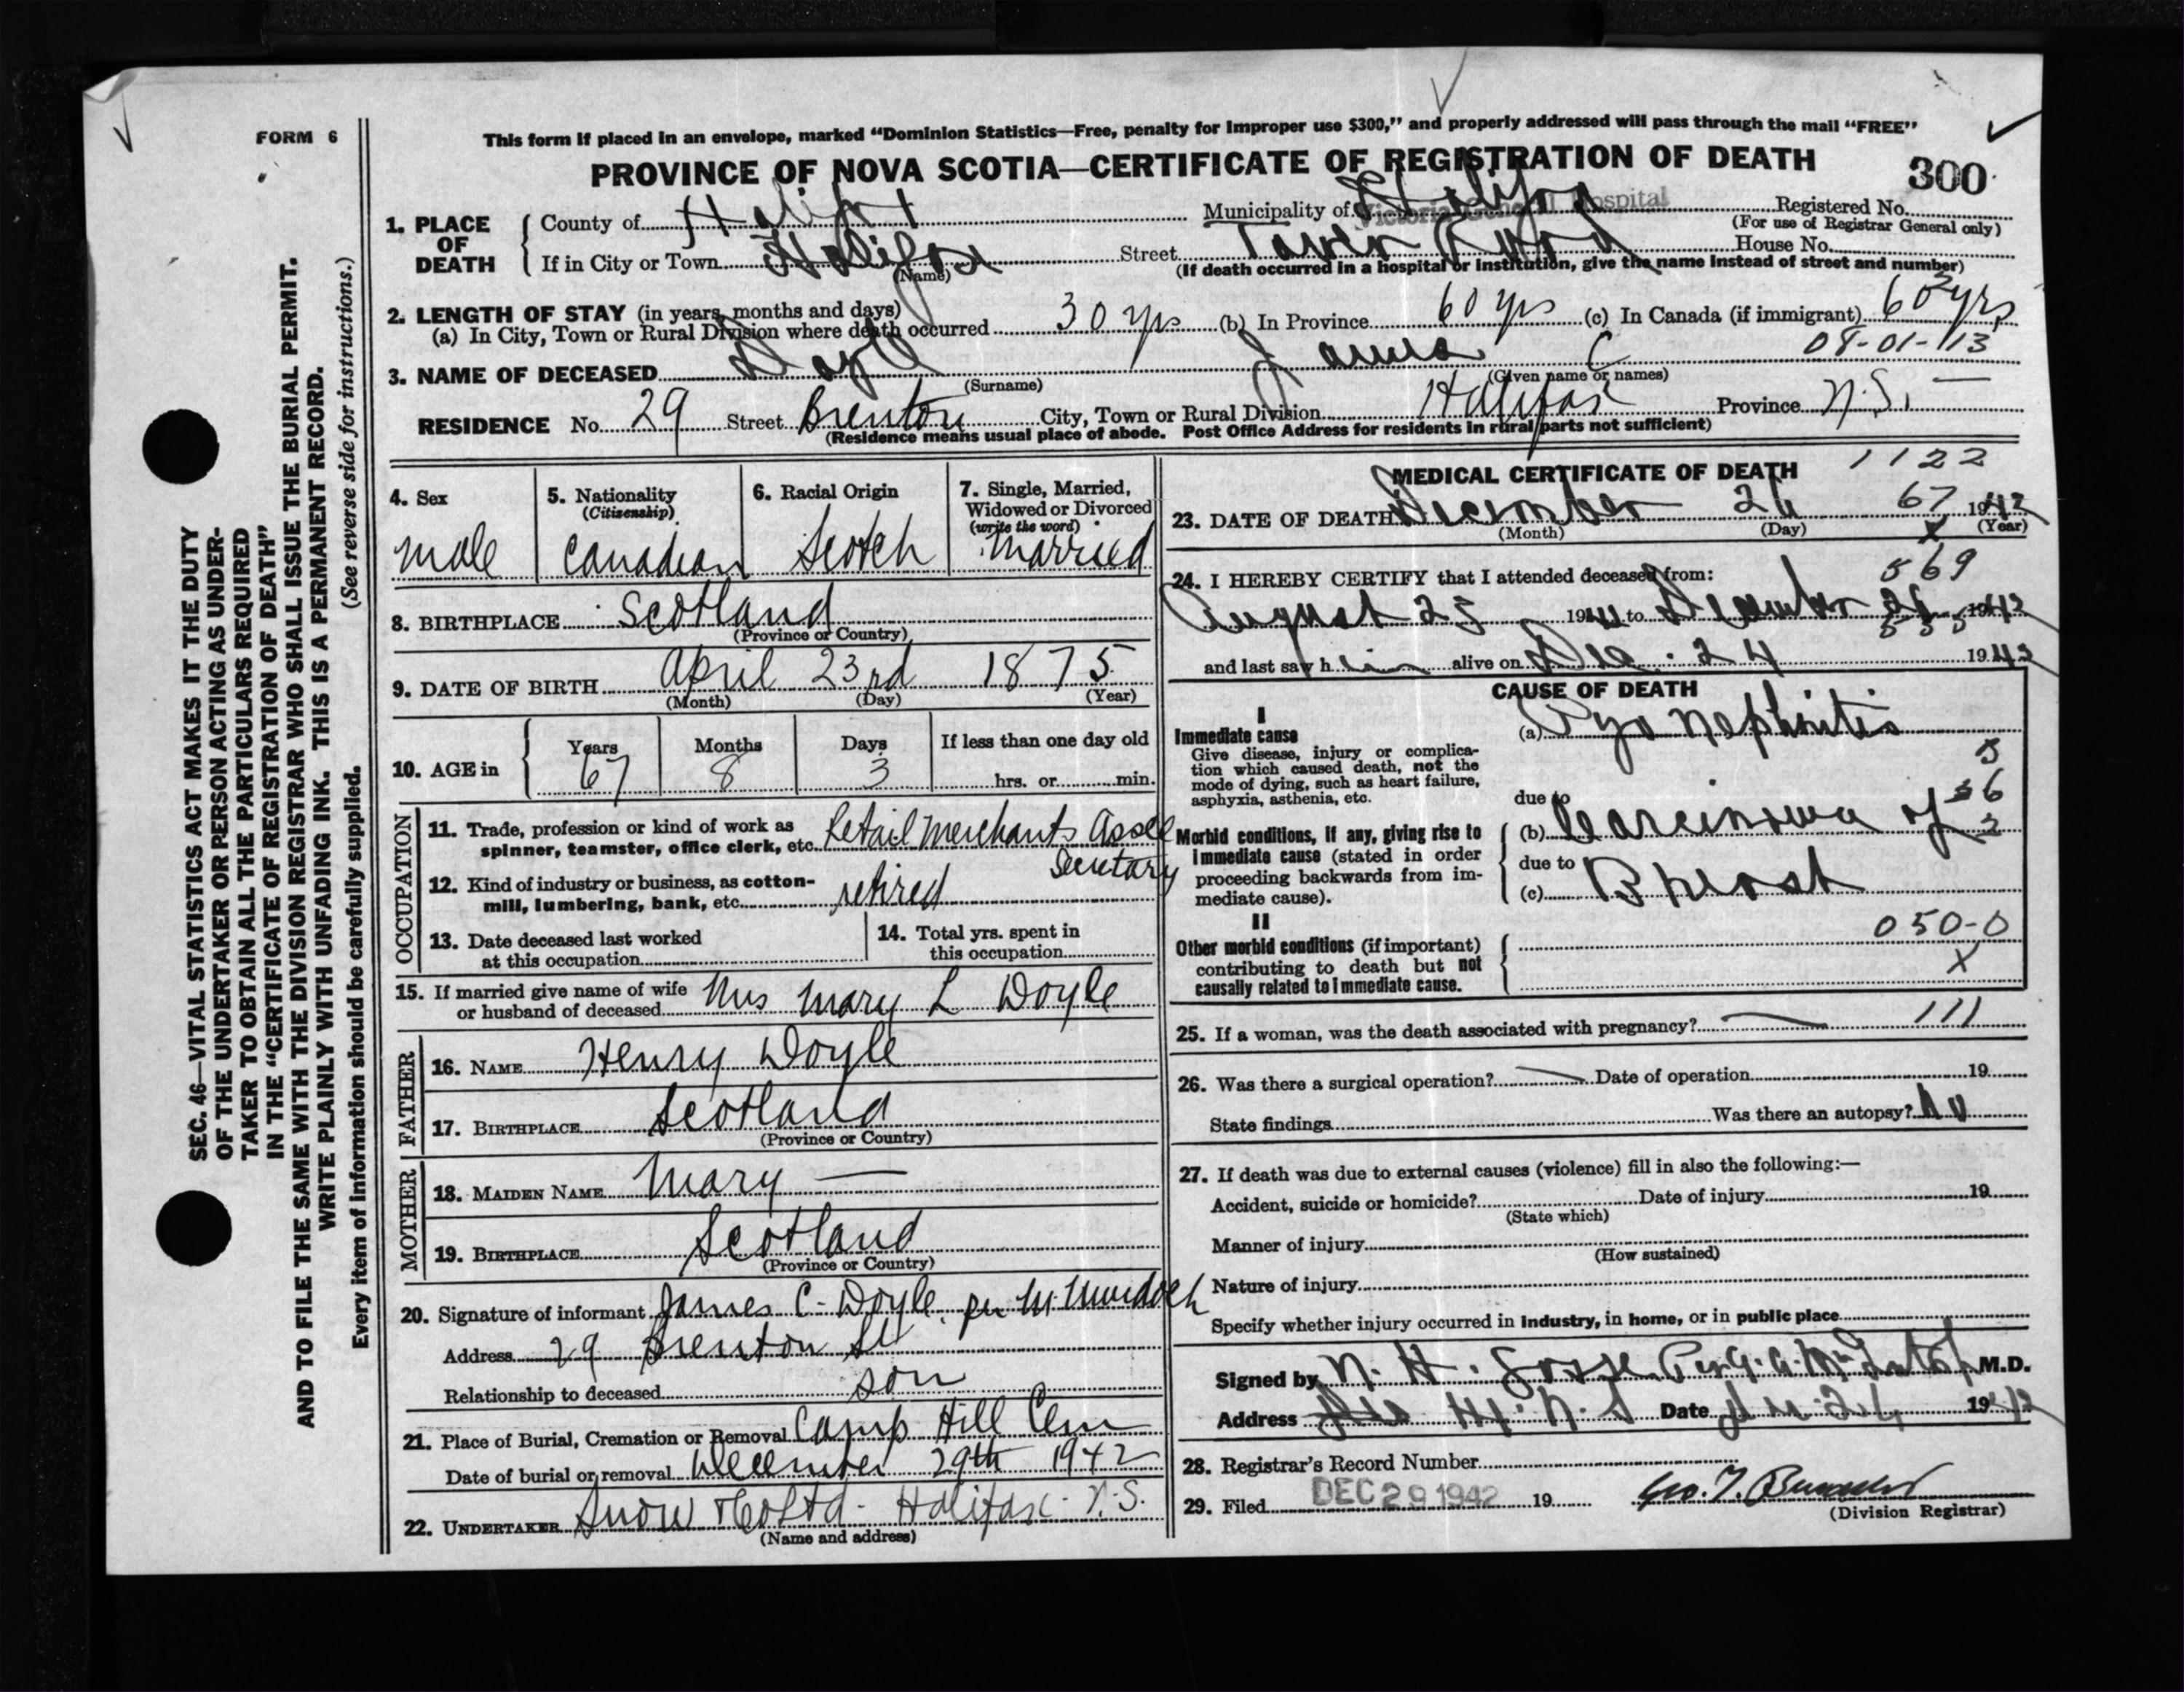 FORM 6
This form if placed in an envelope, marked “Dominion Statistics—Free, penalty for improper use $300,” and properly addressed will pass through the mail “FREE”
PROVINCE OF NOVA SCOTIA—CERTIFICATE OF REGISTRATION OF DEATH
300
1. PLACE OF DEATH
County of Halifax Municipality of Halifax Victoria General Hospital Registered No.
(For use of Registrar General only)
If in City or Town Halifax Street Tower Road House No.
(Name) (If death occurred in a hospital or institution, give the name instead of street and number)
2. LENGTH OF STAY (in years, months and days)
(a) In City, Town or Rural Division where death occurred 30 yrs (b) In Province 60 yrs (c) In Canada (if immigrant) 60 yrs
08-01-13
3. NAME OF DECEASED Doyle James C
(Surname) (Given name or names)
RESIDENCE No. 29 Street Brenton City, Town or Rural Division Halifax Province N.S. —
(Residence means usual place of abode. Post Office Address for residents in rural parts not sufficient)
4. Sex
male
5. Nationality
(Citizenship)
Canadian
6. Racial Origin
Scotch
7. Single, Married,
Widowed or Divorced
(write the word)
Married
8. BIRTHPLACE Scotland
(Province or Country)
9. DATE OF BIRTH April 23rd 1875
(Month) (Day) (Year)
10. AGE in
Years Months Days If less than one day old
67 8 3 hrs. or min.
OCCUPATION
11. Trade, profession or kind of work as
spinner, teamster, office clerk, etc. Retail Merchants Assoc
Secretary
12. Kind of industry or business, as cotton-
mill, lumbering, bank, etc. retired
13. Date deceased last worked
at this occupation
14. Total yrs. spent in
this occupation
15. If married give name of wife
or husband of deceased Mrs Mary L Doyle
FATHER
16. NAME Henry Doyle
17. BIRTHPLACE Scotland
(Province or Country)
MOTHER
18. MAIDEN NAME Mary —
19. BIRTHPLACE Scotland
(Province or Country)
20. Signature of informant James C. Doyle. per M. Murdoch
Address 29 Brenton St
Relationship to deceased son
21. Place of Burial, Cremation or Removal Camp Hill Cem
Date of burial or removal December 29th 1942
22. UNDERTAKER Snow & Co Ltd - Halifax - N.S.
(Name and address)
MEDICAL CERTIFICATE OF DEATH
1122
23. DATE OF DEATH December 26 67 1942
(Month) (Day) (Year)
X
24. I HEREBY CERTIFY that I attended deceased from:
569
August 23 19 to December 26 1942
and last saw h im alive on Dec. 24 1942
CAUSE OF DEATH
I
Immediate cause
Give disease, injury or complica-
tion which caused death, not the
mode of dying, such as heart failure,
asphyxia, asthenia, etc.
(a) Pyo nephritis
due to
Morbid conditions, if any, giving rise to
immediate cause (stated in order
proceeding backwards from im-
mediate cause).
(b) Carcinoma of
due to
(c) Breast
II
Other morbid conditions (if important)
contributing to death but not
causally related to immediate cause.
050-0
X
25. If a woman, was the death associated with pregnancy? — 111
26. Was there a surgical operation? — Date of operation 19
State findings Was there an autopsy? No
27. If death was due to external causes (violence) fill in also the following:—
Accident, suicide or homicide? Date of injury 19
(State which)
Manner of injury
(How sustained)
Nature of injury
Specify whether injury occurred in industry, in home, or in public place
Signed by N. H. Gosse Per M.D.
Address N.S Date 1942
28. Registrar's Record Number
29. Filed DEC 29 1942 19
(Division Registrar)
SEC. 46—VITAL STATISTICS ACT MAKES IT THE DUTY
OF THE UNDERTAKER OR PERSON ACTING AS UNDER-
TAKER TO OBTAIN ALL THE PARTICULARS REQUIRED
IN THE “CERTIFICATE OF REGISTRATION OF DEATH”
AND TO FILE THE SAME WITH THE DIVISION REGISTRAR WHO SHALL ISSUE THE BURIAL PERMIT.
WRITE PLAINLY WITH UNFADING INK. THIS IS A PERMANENT RECORD.
(See reverse side for instructions.)
Every item of information should be carefully supplied.